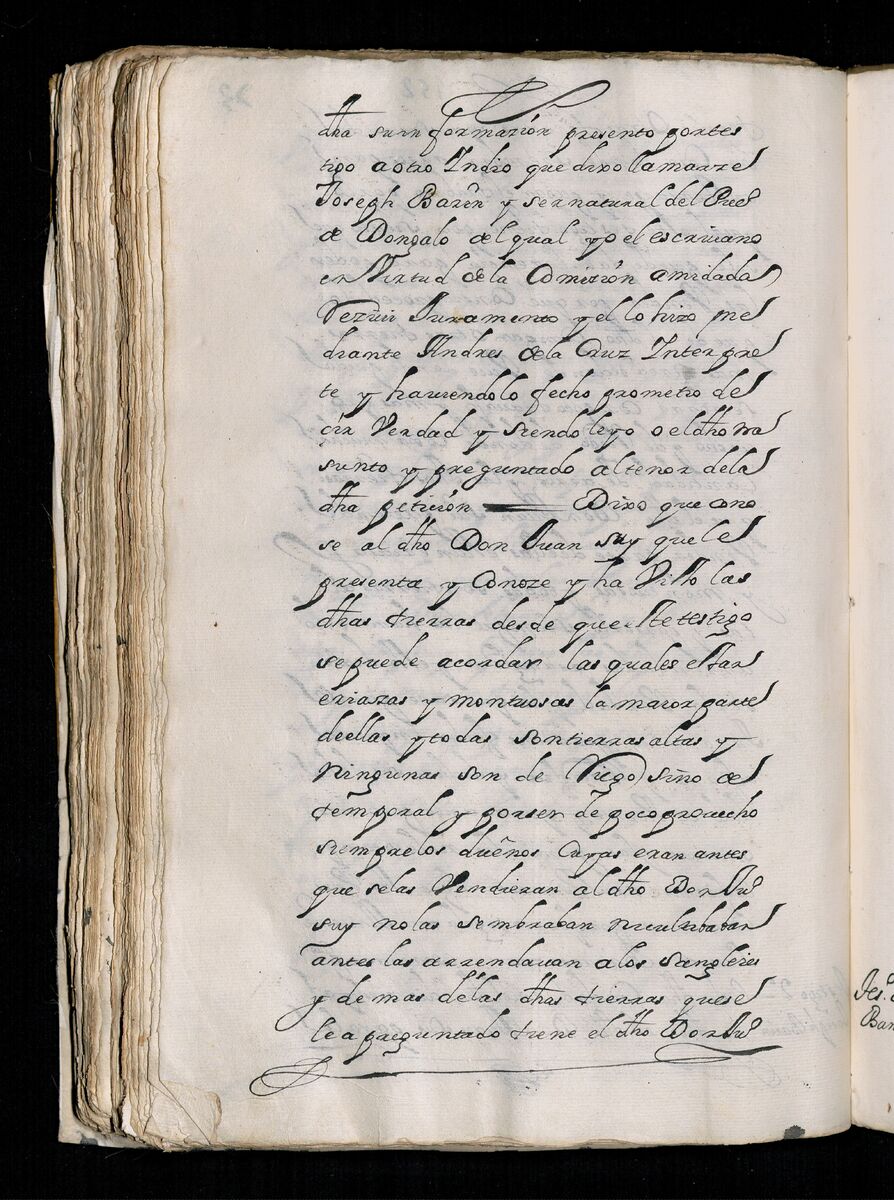 dha su informazion presento por tes
tigo a otro Indio que dixo llamarze
Joseph Barin y ser natural del Pueo
de Dongalo del qual yo el escriuano
en Virtud de la Comizion a mi dada
Reziui Juramento y el lo hizo me
diante Andres de la Cruz Interpre
te y hauiendolo fecho prometio de
cir Verdad y siendo leydo el dho tra
sunto y preguntado al tenor de la
dha peticion Dixo que cono
se al dho Don Juan suy que le
presenta y Conoze y ha visto las
dhas tierras desde que este testigo
se puede acordar las quales estan
eriazas y montuosas la maior parte
de ellas y todas son tierras altas y
ningunas son de Riego sino de
temporal y por ser de poco prouecho
siempre los dueños Cuyas eran antes
que se las Vendieran al dho Don Juo
suy no las sembraban ni cultibaban
antes las arrendauan a los sangleies
y de mas de las dhas tierras que se
le a preguntado tiene el dho Don Juo